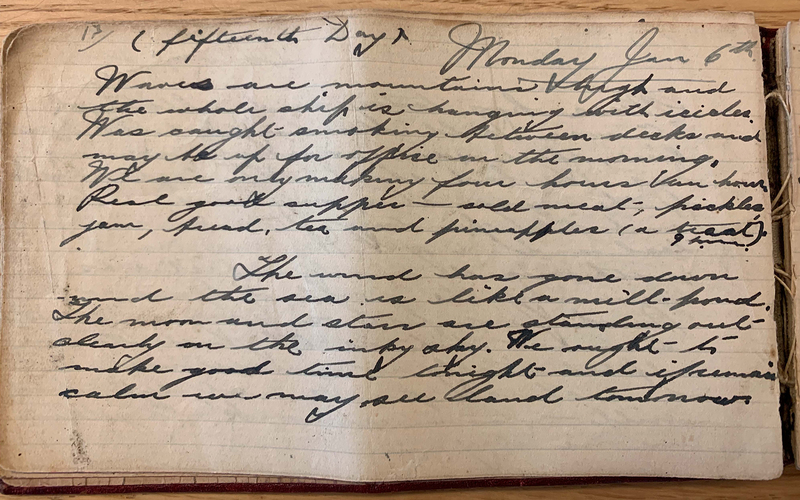 17/ (fifteenth Day) Monday Jan 6th.
Waves are mountains high and
the whole ship is hanging with icicles.
Was caught smoking between decks and
may be up for office in the morning.
We are only making four hours an hour
Real good supper — cold meat, pickles,
jam, bread, tea and pineapples (a treat).
The wind has gone down
and the sea is like a mill-pond.
The moon and stars are standing out
clearly in the inky sky. We ought to
make good time tonight and if remain
calm we may see land tomorrow.